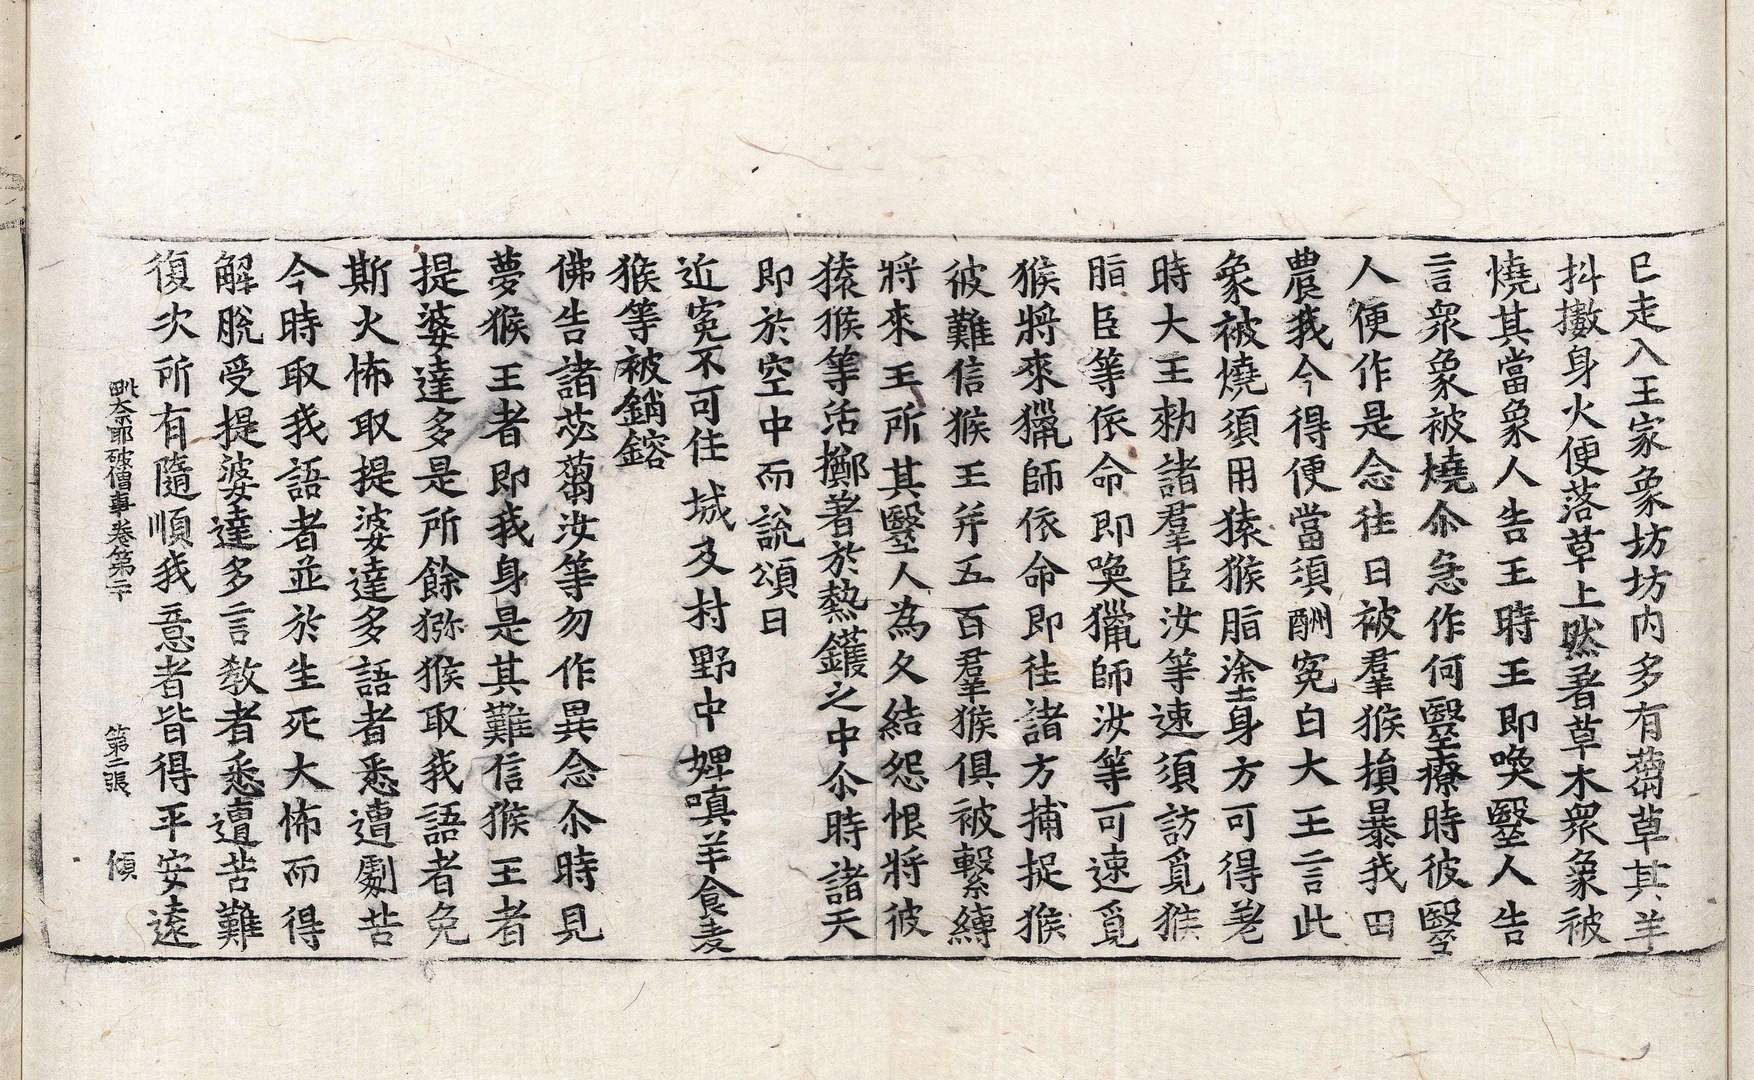 已走入王家象坊坊內多有蒭草其羊
抖擻身火便落草上然著草木衆象被
燒其當象人告王時王即喚毉人告
言衆象被燒尒急作何毉療時彼毉
人便作是念往日被羣猴損暴我田
農我今得便當須酬寃白大王言此
象被燒須用猿猴脂塗身方可得差
時大王勑諸羣臣汝等速須訪覓猴
脂臣等依命即喚獵師汝等可速覓
猴將來獵師依命即往諸方捕捉猴
彼難信猴王并五百羣猴俱被繫縛
將來王所其毉人為久結怨恨將彼
猿猴等活擲著於熱鑊之中尒時諸天
即於空中而說頌曰
近寃不可住 城及村野中 婢嗔羊食麦
猴等被銷鎔
佛告諸苾蒭汝等勿作異念尒時見
夢猴王者即我身是其難信猴王者
提婆達多是所餘獼猴取我語者免
斯火怖取提婆達多語者悉遭劇苦
今時取我語者並於生死大怖而得
解脫受提婆達多言教者悉遭苦難
復次所有隨順我意者皆得平安遠
毗奈耶破僧事卷第二十 第二張 傾